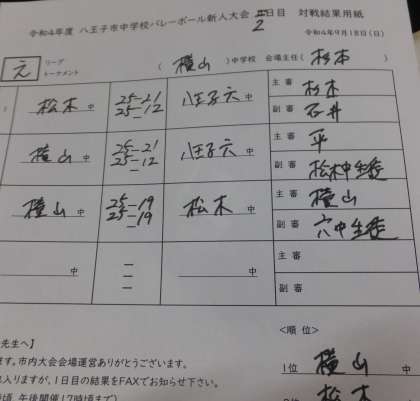 令和4年度 八王子市中学校バレーボール新人大会 2日目 対戦結果用紙
令和4年9月18日(日)
え リーグ トーナメント ( 横山 )中学校 会場主任( 杉本 )
松木 中 25-21 25-12 八王子六 中 主審 杉本
副審 石井
横山 中 25-21 25-12 八王子六 中 主審 平
副審 松木中生徒
横山 中 25-19 25-19 松木 中 主審 横山
副審 六中生徒
中 - - - 中 主審
副審
先生へ】
ます。市内大会会場運営ありがとうございます。
入りますが、1日目の結果をFAXでお知らせ下さい。
午後開催17時頃まで)
<順位>
1位 横山 中
松木